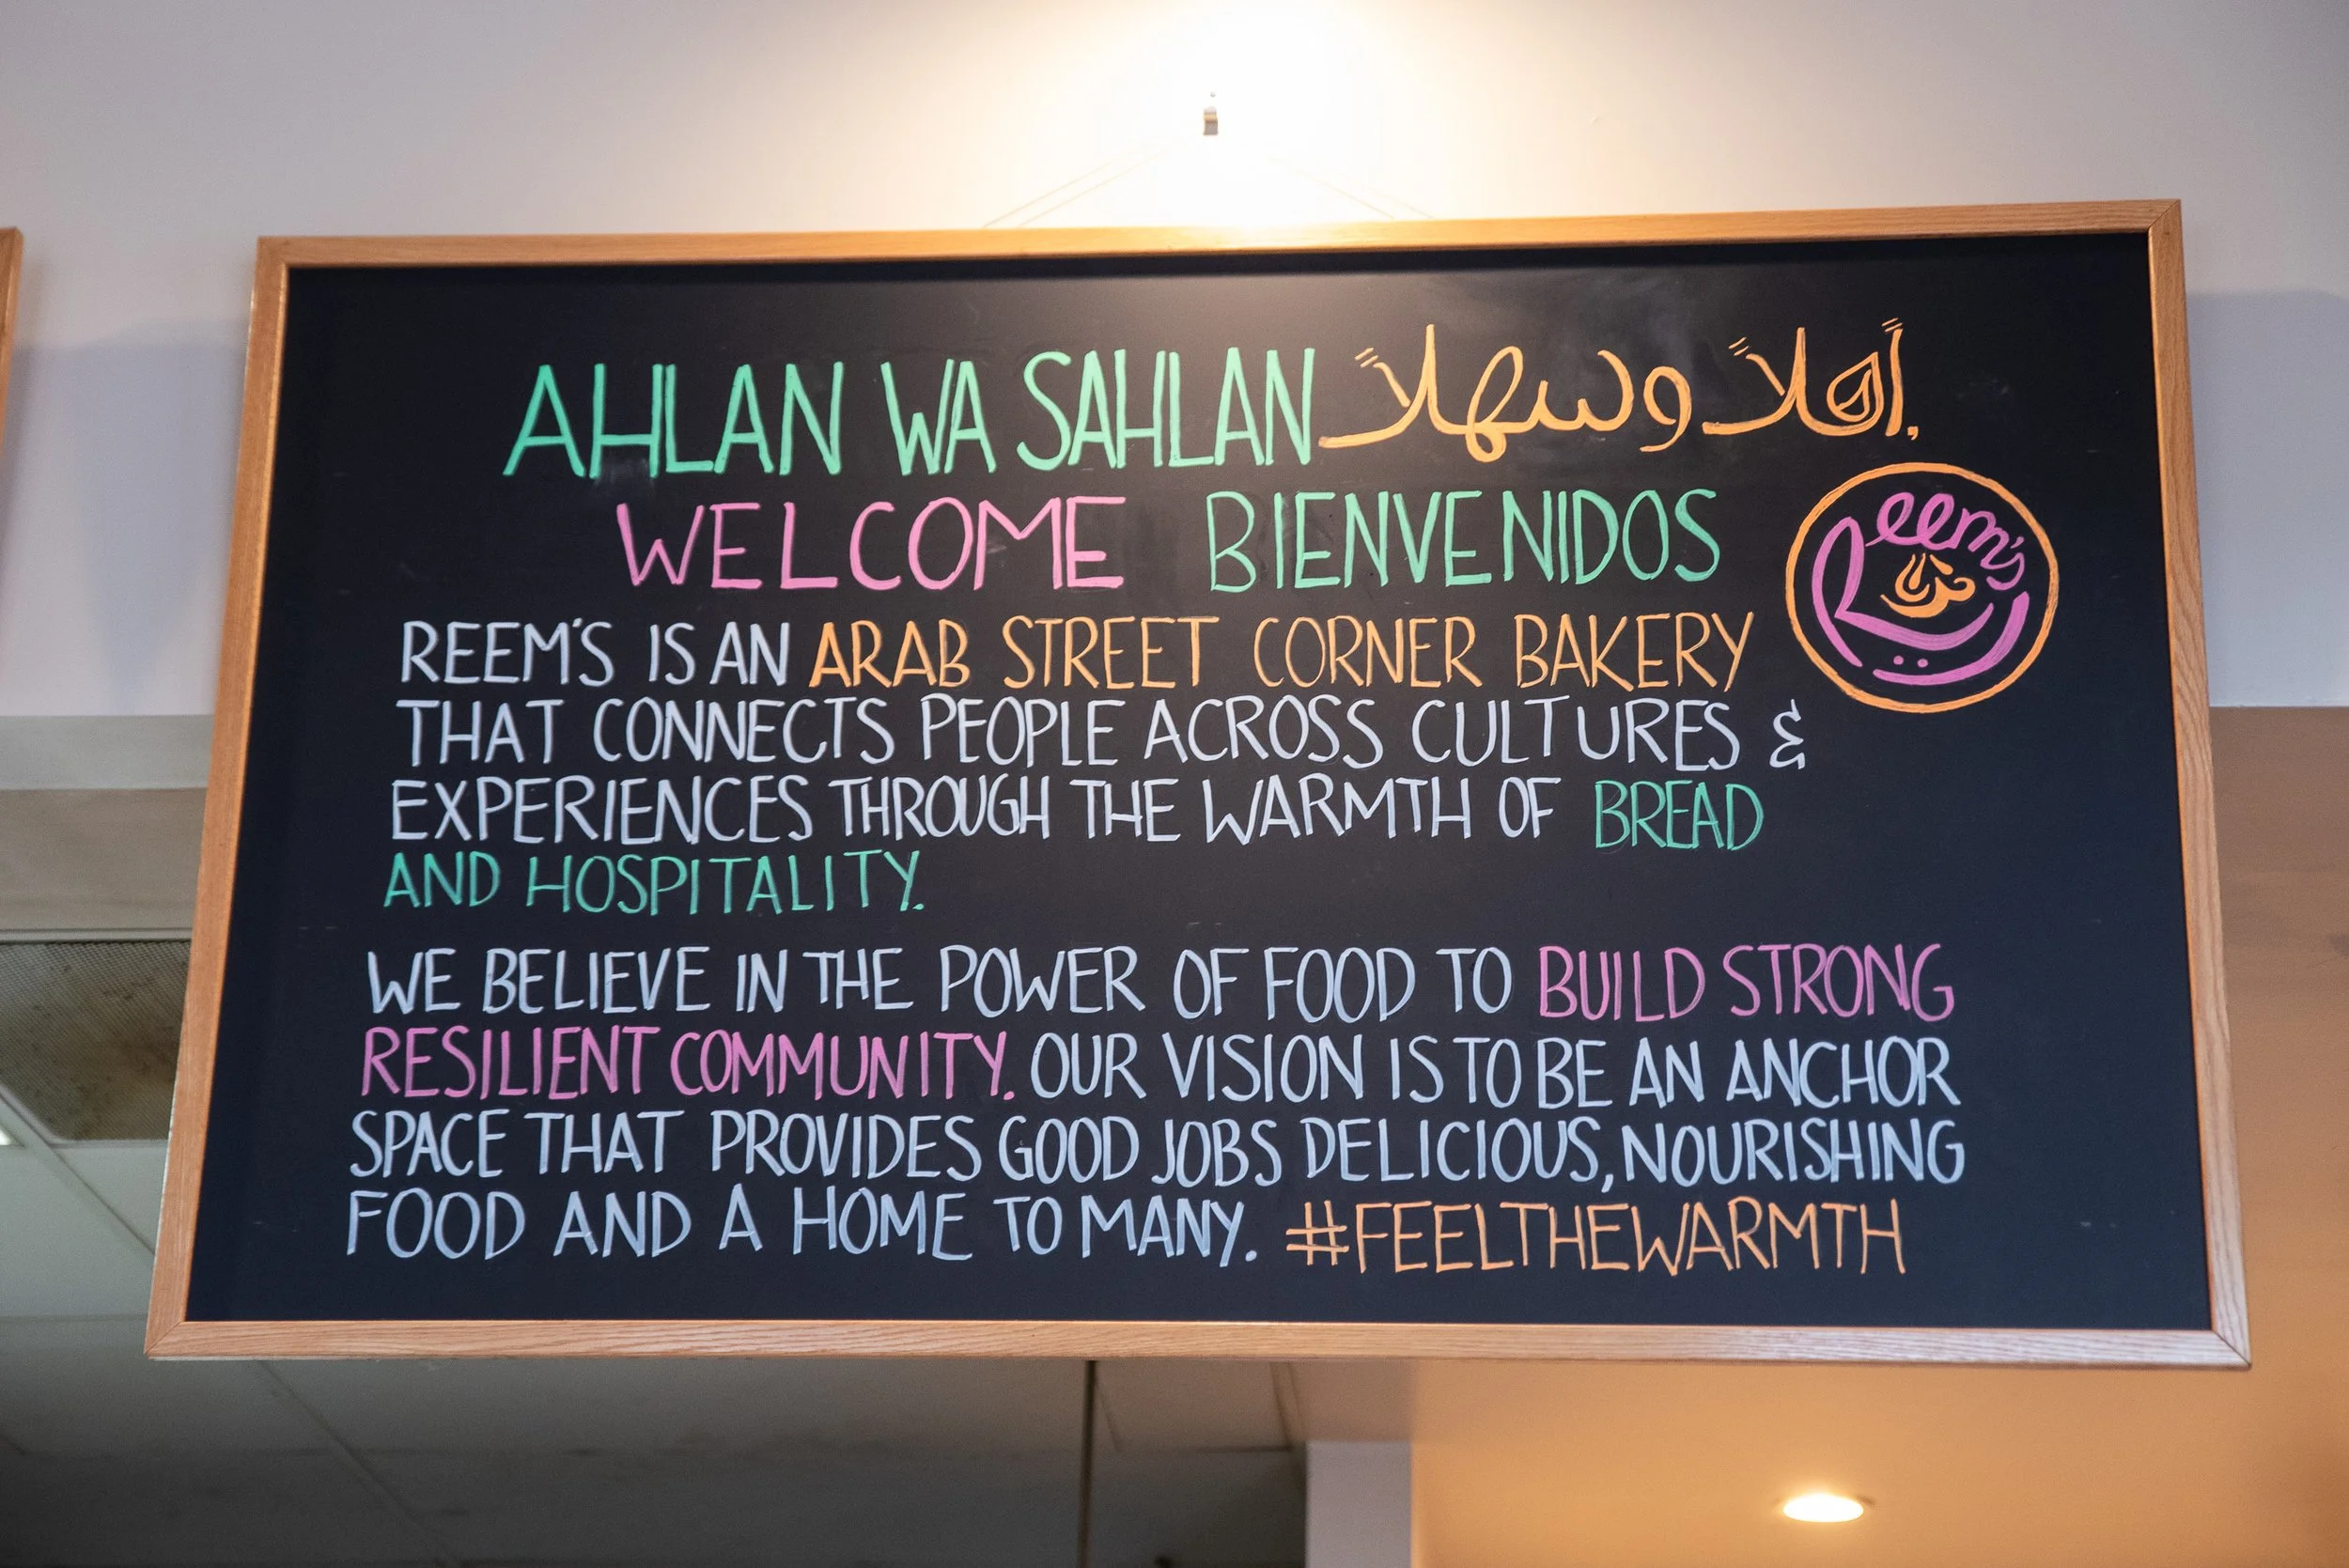 AHLAN WA SAHLAN أهلاً وسهلاً
WELCOME BIENVENIDOS
Reem's
REEM'S IS AN ARAB STREET CORNER BAKERY
THAT CONNECTS PEOPLE ACROSS CULTURES &
EXPERIENCES THROUGH THE WARMTH OF BREAD
AND HOSPITALITY.
WE BELIEVE IN THE POWER OF FOOD TO BUILD STRONG
RESILIENT COMMUNITY. OUR VISION IS TO BE AN ANCHOR
SPACE THAT PROVIDES GOOD JOBS DELICIOUS, NOURISHING
FOOD AND A HOME TO MANY. #FEELTHEWARMTH